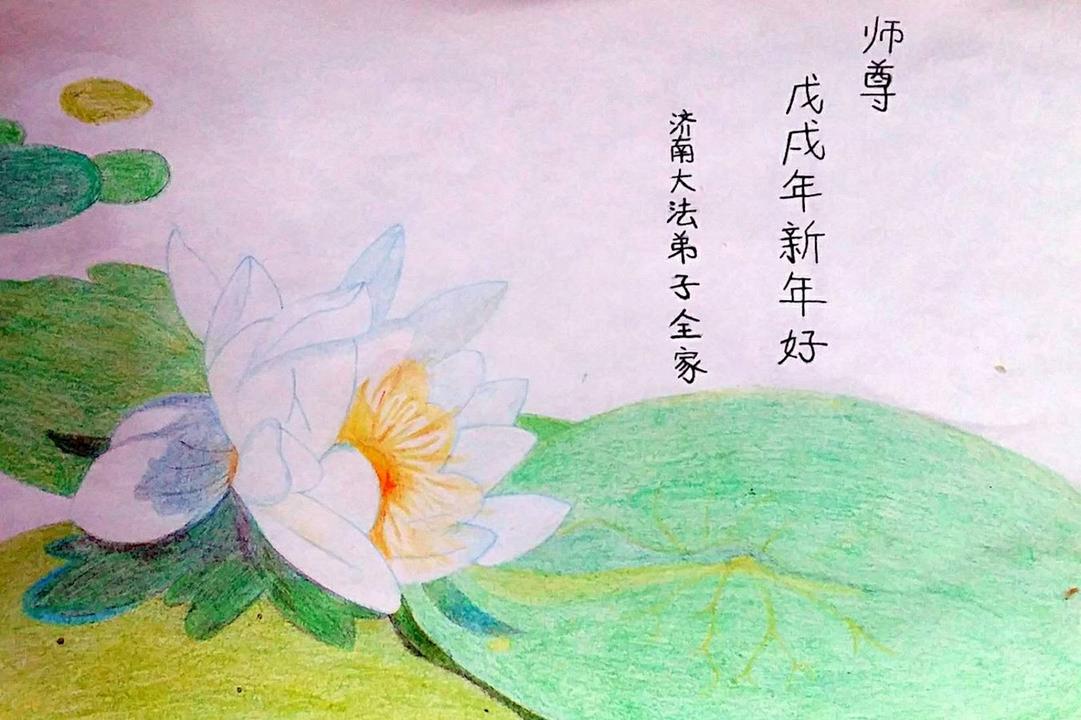 师尊
戊戌年新年好
济南大法弟子全家